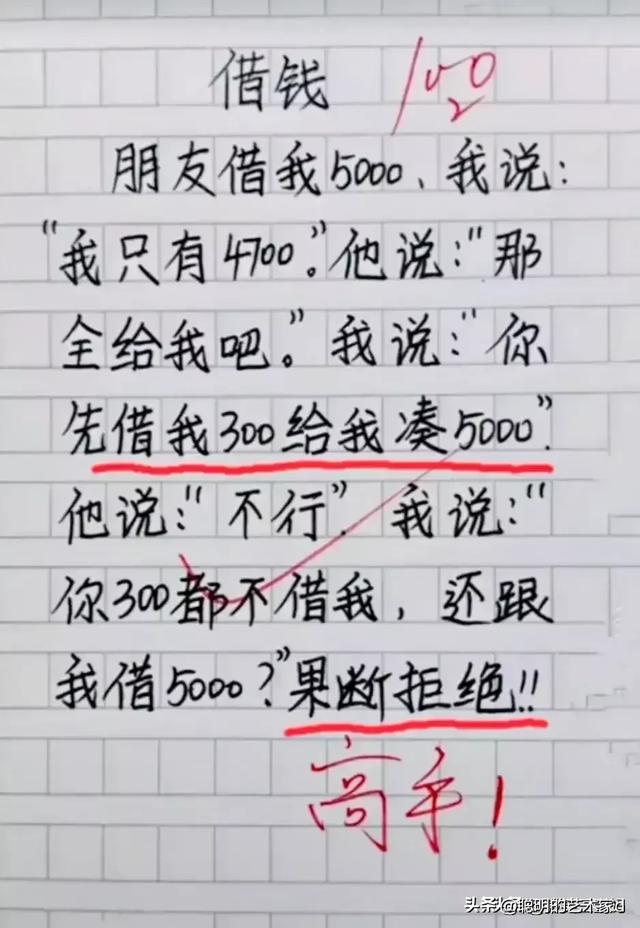 借钱 100
朋友借我5000、我说:
“我只有4700。”他说:“那
全给我吧。”我说:“你
先借我300给我凑5000”.
他说:“不行”. 我说:“
你300都不借我, 还跟
我借5000?”果断拒绝!!
高手!
头条@聪明的艺术家dJ